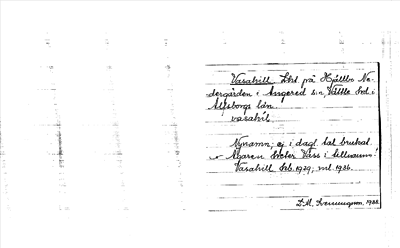 Vasahill Lht på Hjällbo Ne-
dergården i Angered s:n, Vättle hd i
Älfsborgs län.
vasahil.
Nynamn; ej i dagl. tal brukat.
Ägaren heter Vass i tillnamn.
Vasahill Jrb. 1929, ml. 1936.
1938.